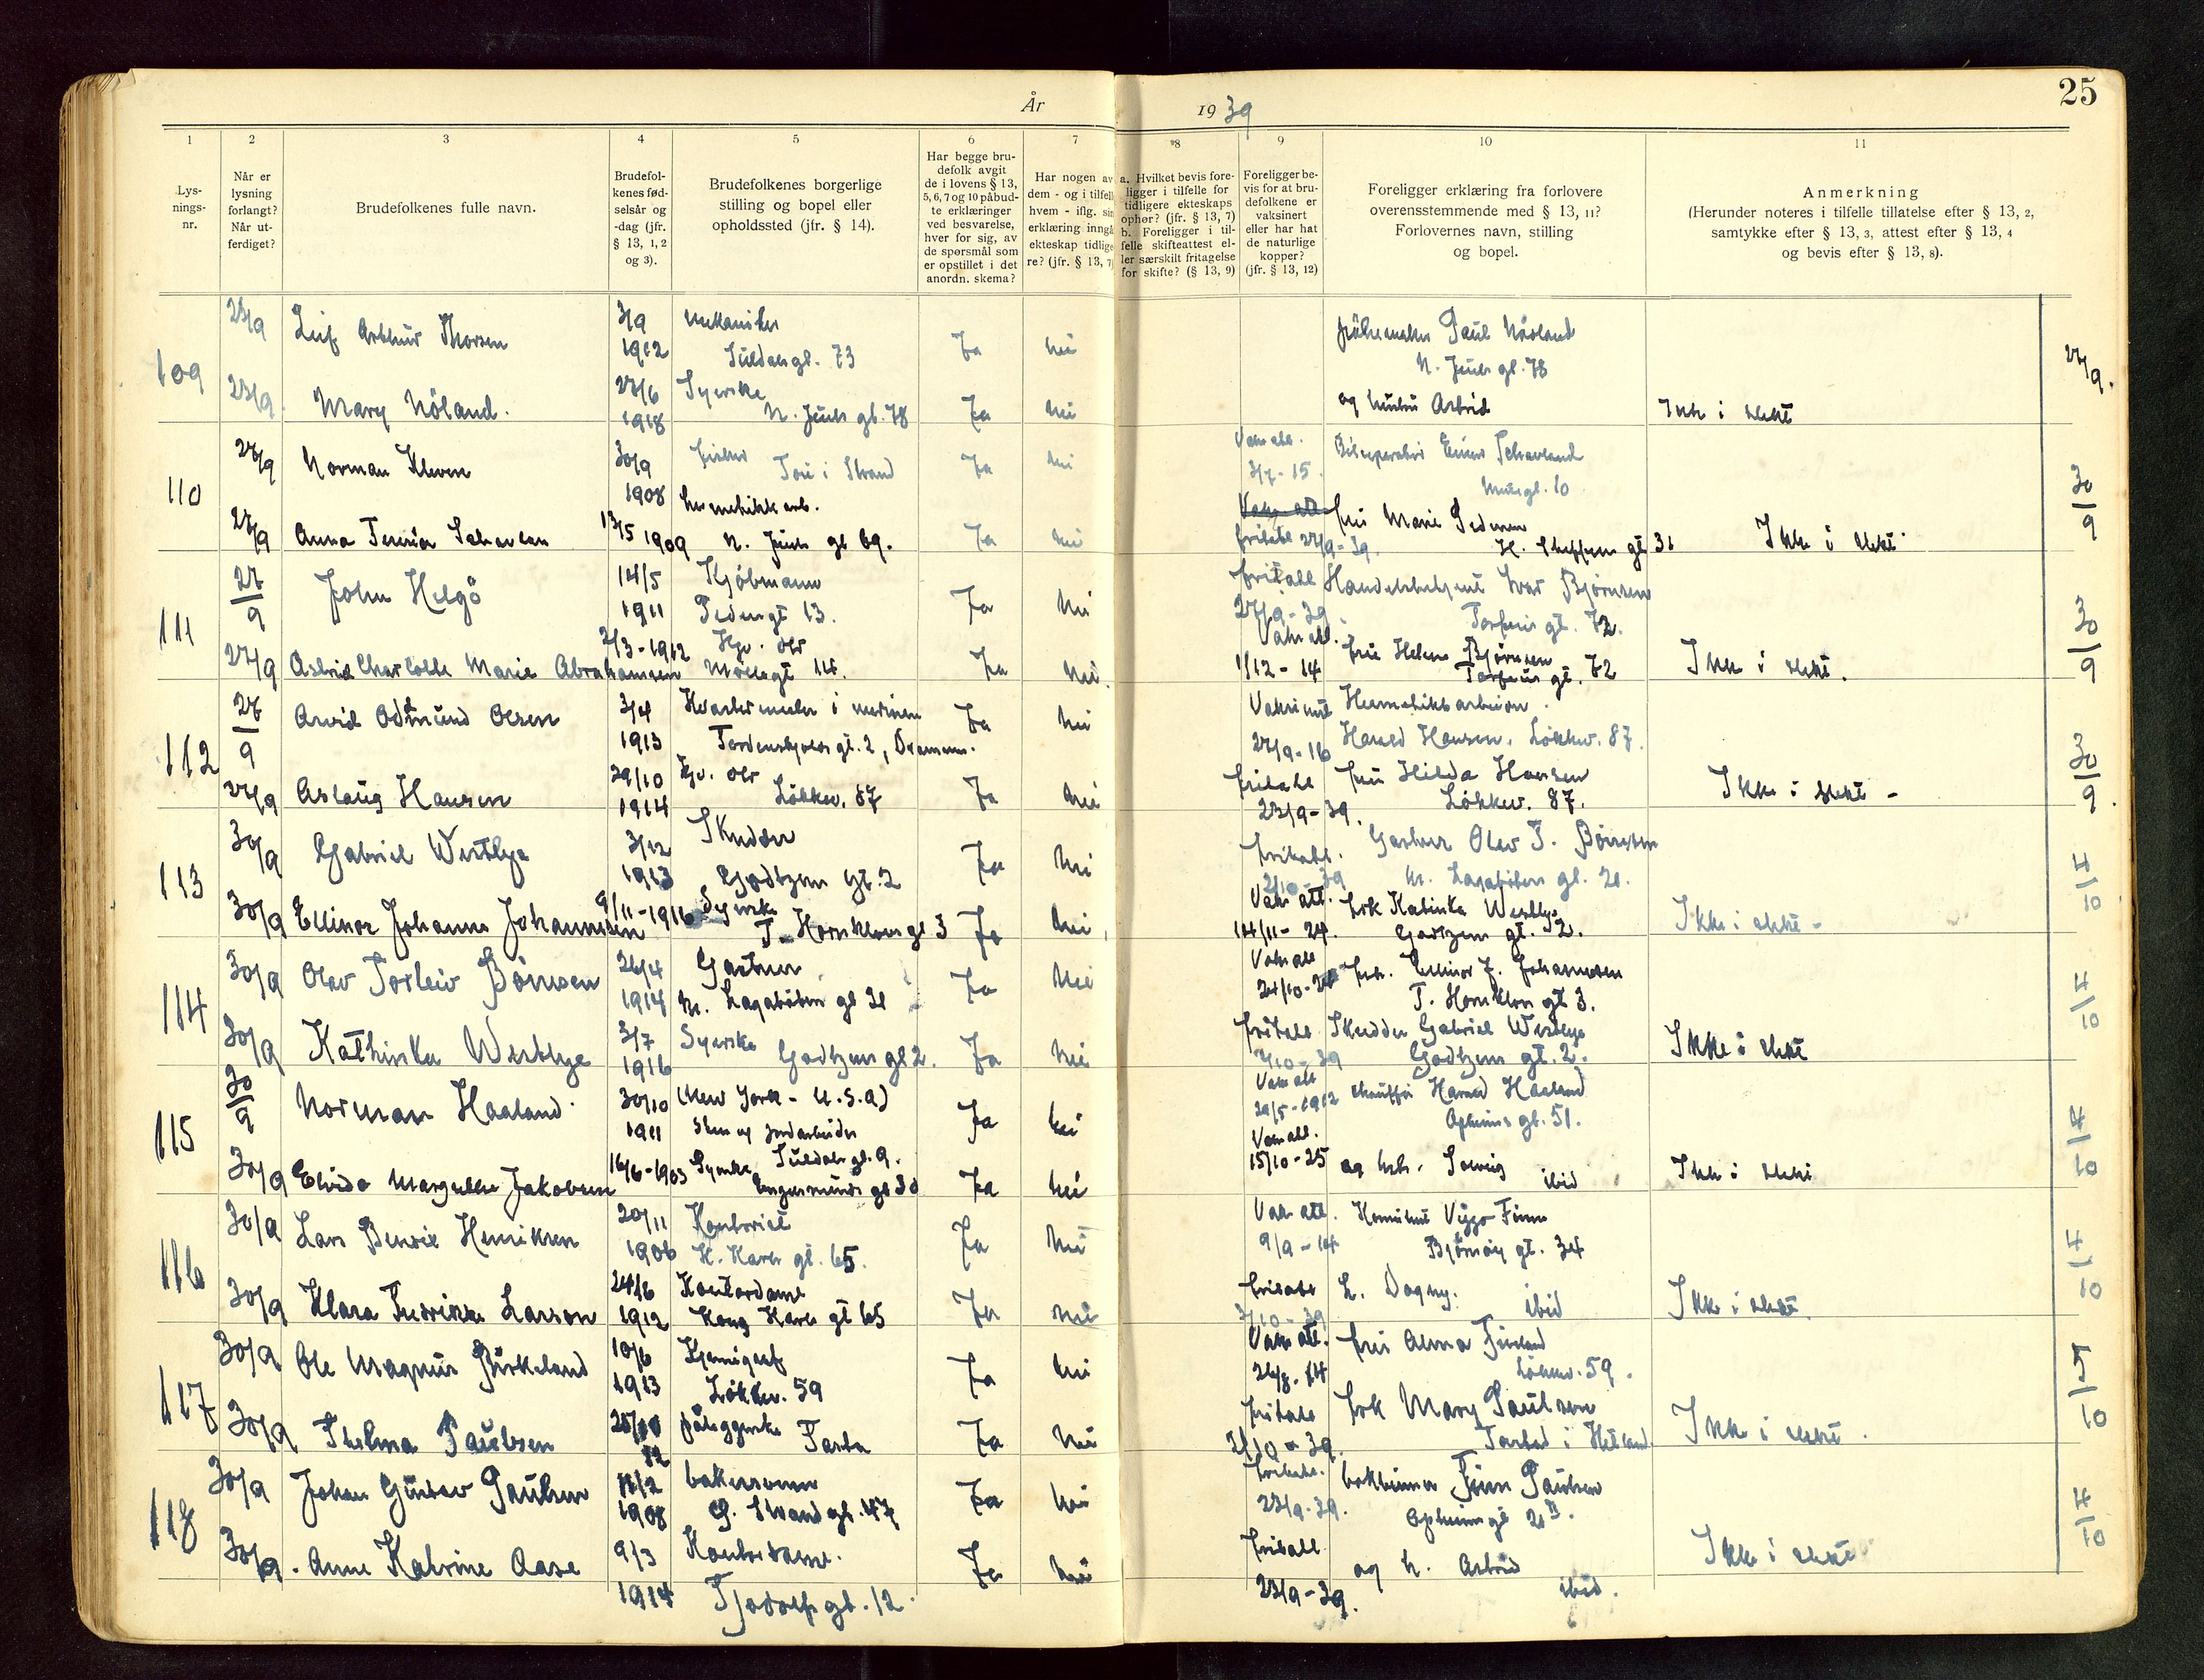 25
År 1939
1
Lys-
nings-
nr.
2
Når er
lysning
forlangt?
Når ut-
ferdiget?
3
Brudefolkenes fulle navn.
4
Brudefol-
kenes fød-
selsår og
-dag (jfr.
§ 13, 1, 2
og 3).
5
Brudefolkenes borgerlige
stilling og bopel eller
opholdssted (jfr. § 14).
6
Har begge bru-
defolk avgit
de i lovens § 13,
5, 6, 7 og 10 påbud-
te erklæringer
ved besvarelse,
hver for sig, av
de spørsmål som
er opstillet i det
anordn. skema?
7
Har nogen av
dem - og i tilfelle
hvem - iflg. sin
erklæring inngå
ekteskap tidlige
re? (jfr. § 13, 7)
*8
a. Hvilket bevis fore-
ligger i tilfelle for
tidligere ekteskaps
ophør? (jfr. § 13, 7)
b. Foreligger i til-
felle skifteattest el-
ler særskilt fritagelse
for skifte? (§ 13, 9)
9
Foreligger be-
vis for at bru-
defolkene er
vaksinert
eller har hat
de naturlige
kopper?
(jfr. § 13, 12)
10
Foreligger erklæring fra forlovere
overensstemmende med § 13, 11?
Forlovernes navn, stilling
og bopel.
11
Anmerkning
(Herunder noteres i tilfelle tillatelse efter § 13, 2,
samtykke efter § 13, 3, attest efter § 13, 4
og bevis efter § 13, 8).
109
23/9 Leif Arthur Thorsen 3/9 1912 mekaniker Suldalsgt. 73 Ja nei
Paul Nöland N. Juels gt. 78
23/9 Mary Nöland. 27/6 1918 Syerske N. Juels gt. 78 Ja nei
og hustru Astrid Ikke i slekt
27/9.
110
27/9 Norman Kleven 30/9 1908 fisker Tou i Strand Ja nei
Vaks att. 3/7-15. Einar Scharland gt. 10
27/9 Anna 13/5 1909 hermetikkarb. N. Juels gt 69. Ja nei
Vaks att fritatt 27/9-39. fru Marie Pedersen H. Steffens gt 31 Ikke i slekt
30/9
111
27/9 John Helgö 14/5 1911 Kjöbmann Pedersgt 13. Ja nei
fritatt 27/9-39. Ivar Björnsen Torfeus gt. 72.
27/9 Astrid Charlotte Marie Abrahamsen 2/3-1912 Hgv. obr Möllegt 14. Ja nei.
Vaks att. 1/12-14 fru Helene Björnsen Torfeus gt. 72 Ikke i slekt.
30/9
112
27/9 Arvid Odmund Olsen 3/4 1913 Kvartermester i marinen Tordenskjolds gt. 2, Drammen. Ja nei
Vaksinert 27/9-16 Hermetikkarbeider Harald Hansen. Lökkev. 87.
27/9 Aslaug Hansen 29/10 1914 Hgv. obr Lökkev. 87 Ja nei
fritatt 23/9-39. fru Hilda Hansen Lökkev. 87. Ikke i slekt -
30/9.
113
30/9 Gabriel Westbye 3/12 1913 Skredder Godtzens gt. 2 Ja nei
fritatt. 2/10-39 Gartner Olav T. Bönesen M. Lagaböters gt. 21.
30/9 Ellinor Johanne Johannesen 9/11-1916 Syerske T. Hornklovs gt 3 Ja nei.
Vaks att. 14/11-24. frk Kathinka Westbye Godtzens gt. 2. Ikke i slekt -
4/10
114
30/9 Olav Torleiv Bönesen 26/4 1914 Gartner M. Lagaböters gt 21 Ja nei
Vaks att 24/10-24 frk. Ellinor J. Johannesen T. Hornklovs gt 3.
30/9 Kathinka Westbye 3/7 1916 Syerske Godtzens gt 2. Ja nei
fritatt 3/10-39 Skredder Gabriel Westbye Godtzens gt. 2. Ikke i slekt
4/10
115
30/9 Norman Haaland 30/10 1911 (New York - U.S.A) Sten og jordarbeider Suldals gt. 9. Ja nei
Vaks att 29/5-1912 chauffør Harald Haaland Opheims gt. 51.
30/9 Elvida Margrethe Jakobsen 16/6-1903 Syerske gt 30 Ja nei
Vaks att. 15/10-25 og hst. Solveig ibid Ikke i slekt
4/10
116
30/9 Lars Henriksen 20/11 1906 Kontorist K. Karls gt. 65. Ja nei
Vaks att. 9/9-14 Viggo Finne Björnöy gt. 34
30/9 Klara Fredrikke Larson 24/6 1912 Kontordame Kong Karls gt 65 Ja nei
fritatt 3/10-39 h. Dagny. ibid Ikke i slekt.
4/10
117
30/9 Ole Magnus Birkeland 10/6 1913 Lökkev. 59 Ja nei
Vaks att. 26/8-14 fru Alma Lökkev. 59.
30/9 Thelma Paulsen 25/11 12 påleggerske Tasta Ja nei
fritatt 2/10-39. frk Mary Paulsen Tastad i Hetland Ikke i slekt.
5/10
118
30/9 Johan Gustav Paulsen 11/2 1908 bakersvenn G. Strandgt. 47 Ja nei
fritatt. 23/9-39. bokbinder Finn Paulsen Opheimsgt 21B.
30/9. Anne Katrine Aase 9/3 1914 Kontordame. Tjodolfs gt. 12. Ja nei
fritatt 23/9-39. og h. Astrid ibid. Ikke i slekt
4/10